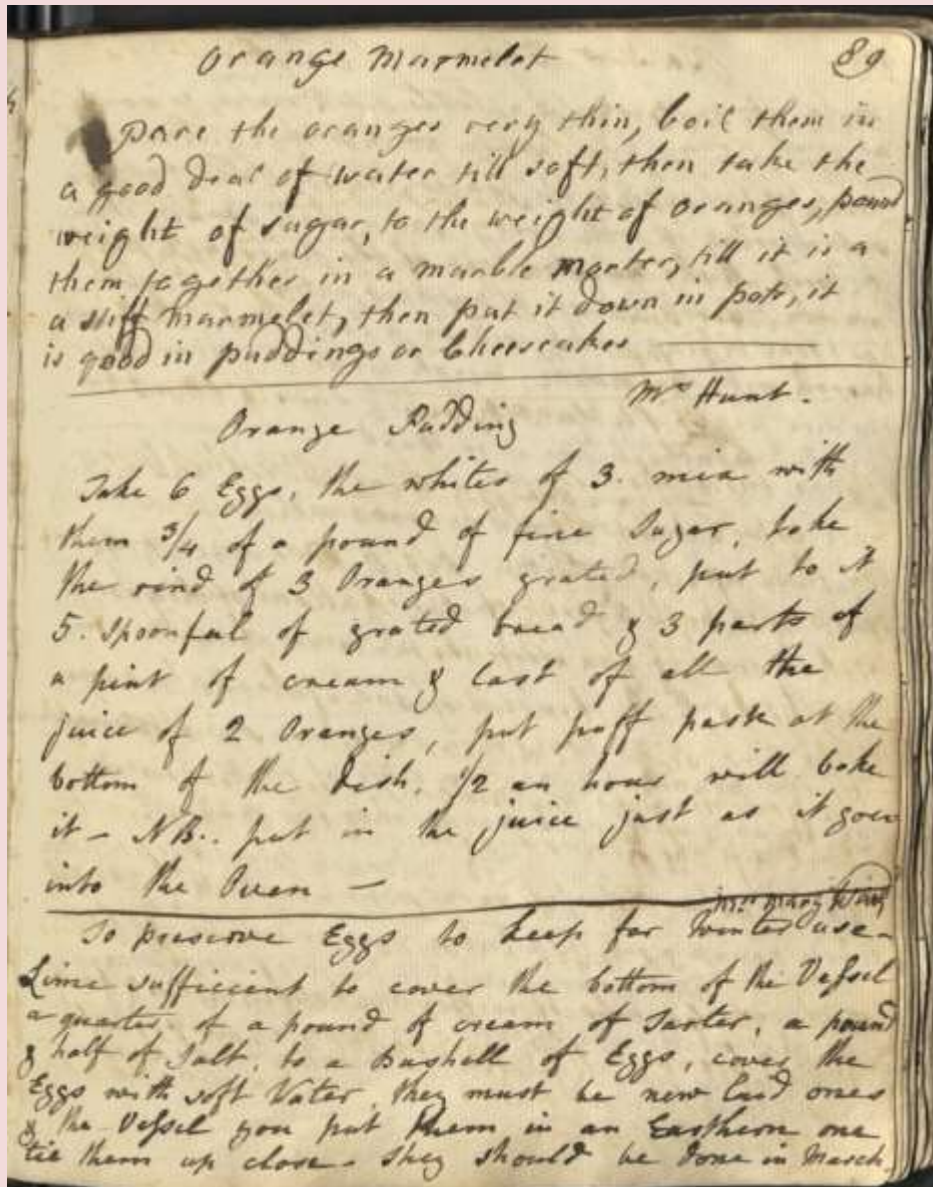 Orange Marmelet 89
Pare the oranges very thin, boil them in
a good deal of water till soft, then take the
weight of sugar, to the weight of oranges, pound
them together in a marble morter, till it is a
a stiff marmelet, then put it down in pots, it
is good in puddings or Cheesecakes
Mrs Hunt.
Orange Pudding
Take 6 Eggs, the whites of 3. mix with
them 3/4 of a pound of fine Sugar, take
the rind of 3 Oranges grated, put to it
5. Spoonful of grated bread & 3 parts of
a pint of cream & last of all the
juice of 2 Oranges, put puff paste at the
bottom of the dish, 1/2 an hour will bake
it - NB.. put in the juice just as it goes
into the Oven -
Mrs Mary
To preserve Eggs to keep for Winter use -
Lime sufficient to cover the bottom of the Vessel
a quarter of a pound of cream of Tarter, a pound
& half of Salt, to a Bushell of Eggs, cover the
Eggs with soft Water, they must be new laid ones
& the Vessel you put them in an Earthern one
tie them up close - they should be done in March.